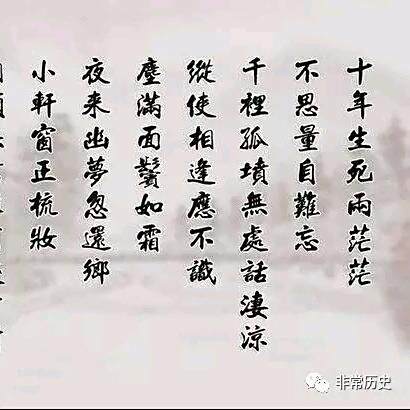 十年生死兩茫茫
不思量自難忘
千裡孤墳無處話淒涼
縱使相逢應不識
塵滿面鬢如霜
夜来幽夢忽還鄉
小軒窗正梳妝
非常历史